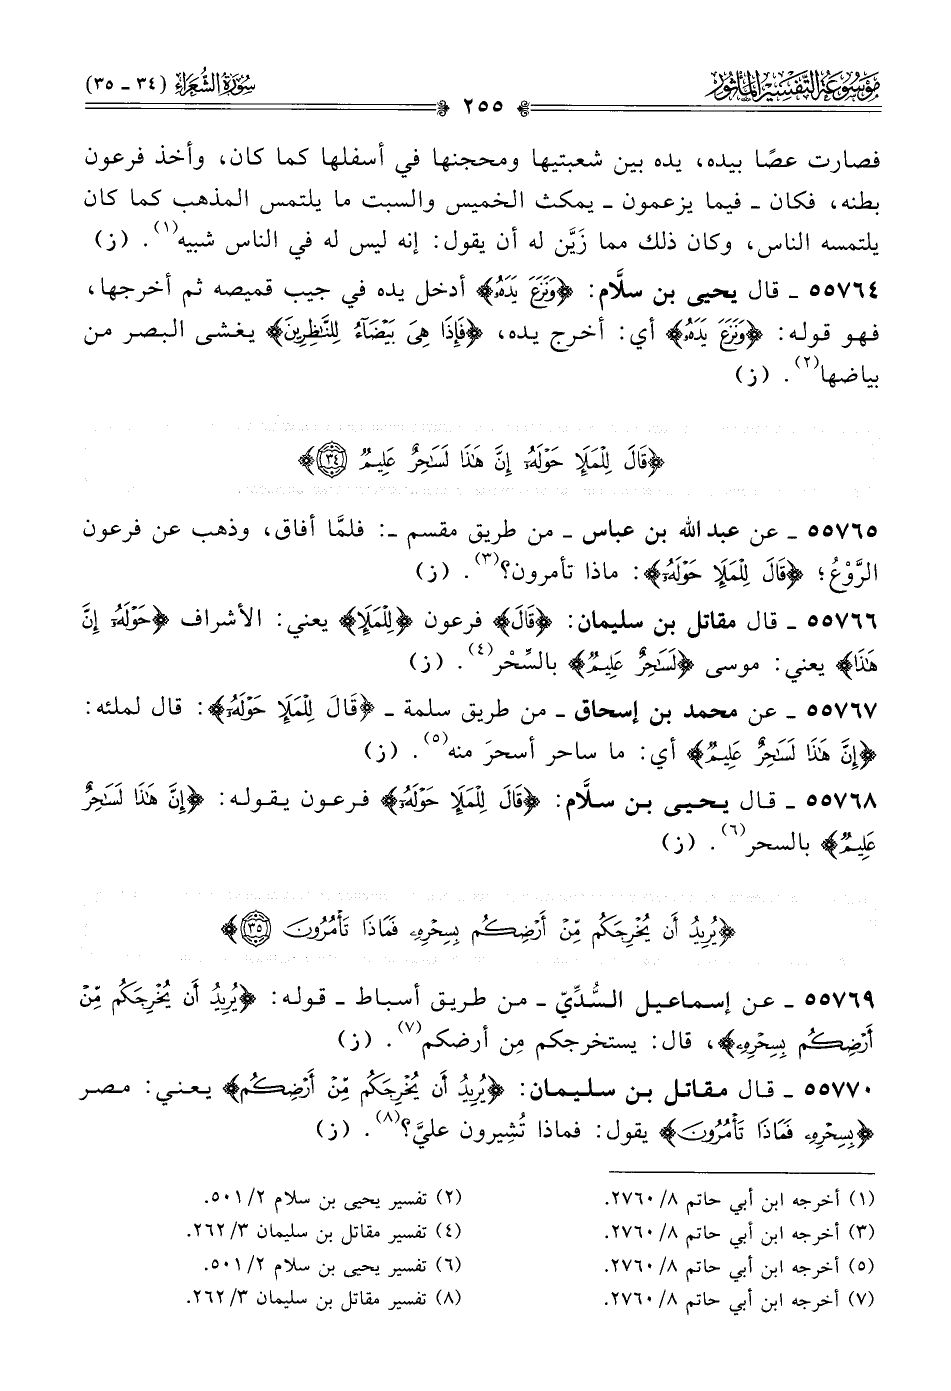 مَوْسُوعَة التَّفْسِيْر المَأْثُور
سُورَةُ الشُّعَرَاءِ (٣٤ - ٣٥)
٢٥٥
فصارت عصًا بيده، يده بين شعبتيها ومحجنها في أسفلها كما كان، وأخذ فرعون
بطنه، فكان - فيما يزعمون - يمكث الخميس والسبت ما يلتمس المذهب كما كان
يلتمسه الناس، وكان ذلك مما زَيَّن له أن يقول: إنه ليس له في الناس شبيه(١). (ز)
٥٥٧٦٤ - قال يحيى بن سلَّام: ﴿وَنَزَعَ يَدَهُۥ﴾ أدخل يده في جيب قميصه ثم أخرجها،
فهو قوله: ﴿وَنَزَعَ يَدَهُۥ﴾ أي: أخرج يده، ﴿فَإِذَا هِىَ بَيْضَآءُ لِلنَّٰظِرِينَ﴾ يغشى البصر من
بياضها(٢). (ز)
﴿قَالَ لِلْمَلَإِ حَوْلَهُۥٓ إِنَّ هَٰذَا لَسَٰحِرٌ عَلِيمٌ ٣٤﴾
٥٥٧٦٥ - عن عبد الله بن عباس - من طريق مقسم -: فلمَّا أفاق، وذهب عن فرعون
الرَّوْعُ؛ ﴿قَالَ لِلْمَلَإِ حَوْلَهُۥٓ﴾: ماذا تأمرون؟(٣). (ز)
٥٥٧٦٦ - قال مقاتل بن سليمان: ﴿قَالَ﴾ فرعون ﴿لِلْمَلَإِ﴾ يعني: الأشراف ﴿حَوْلَهُۥٓ إِنَّ
هَٰذَا﴾ يعني: موسى ﴿لَسَٰحِرٌ عَلِيمٌ﴾ بالسِّحْر(٤). (ز)
٥٥٧٦٧ - عن محمد بن إسحاق - من طريق سلمة - ﴿قَالَ لِلْمَلَإِ حَوْلَهُۥٓ﴾: قال لملئه:
﴿إِنَّ هَٰذَا لَسَٰحِرٌ عَلِيمٌ﴾ أي: ما ساحر أسحرَ منه(٥). (ز)
٥٥٧٦٨ - قال يحيى بن سلَّام: ﴿قَالَ لِلْمَلَإِ حَوْلَهُۥٓ﴾ فرعون يقوله: ﴿إِنَّ هَٰذَا لَسَٰحِرٌ
عَلِيمٌ﴾ بالسحر(٦). (ز)
﴿يُرِيدُ أَن يُخْرِجَكُم مِّنْ أَرْضِكُم بِسِحْرِهِۦ فَمَاذَا تَأْمُرُونَ ٣٥﴾
٥٥٧٦٩ - عن إسماعيل السُّدِّيّ - من طريق أسباط - قوله: ﴿يُرِيدُ أَن يُخْرِجَكُم مِّنْ
أَرْضِكُم بِسِحْرِهِۦ﴾، قال: يستخرجكم مِن أرضكم(٧). (ز)
٥٥٧٧٠ - قال مقاتل بن سليمان: ﴿يُرِيدُ أَن يُخْرِجَكُم مِّنْ أَرْضِكُم﴾ يعني: مصر
﴿بِسِحْرِهِۦ فَمَاذَا تَأْمُرُونَ﴾ يقول: فماذا تُشِيرون عليَّ؟(٨). (ز)
(١) أخرجه ابن أبي حاتم ٨/ ٢٧٦٠.
(٢) تفسير يحيى بن سلام ٢/ ٥٠١.
(٣) أخرجه ابن أبي حاتم ٨/ ٢٧٦٠.
(٤) تفسير مقاتل بن سليمان ٣/ ٢٦٢.
(٥) أخرجه ابن أبي حاتم ٨/ ٢٧٦٠.
(٦) تفسير يحيى بن سلام ٢/ ٥٠١.
(٧) أخرجه ابن أبي حاتم ٨/ ٢٧٦٠.
(٨) تفسير مقاتل بن سليمان ٣/ ٢٦٢.